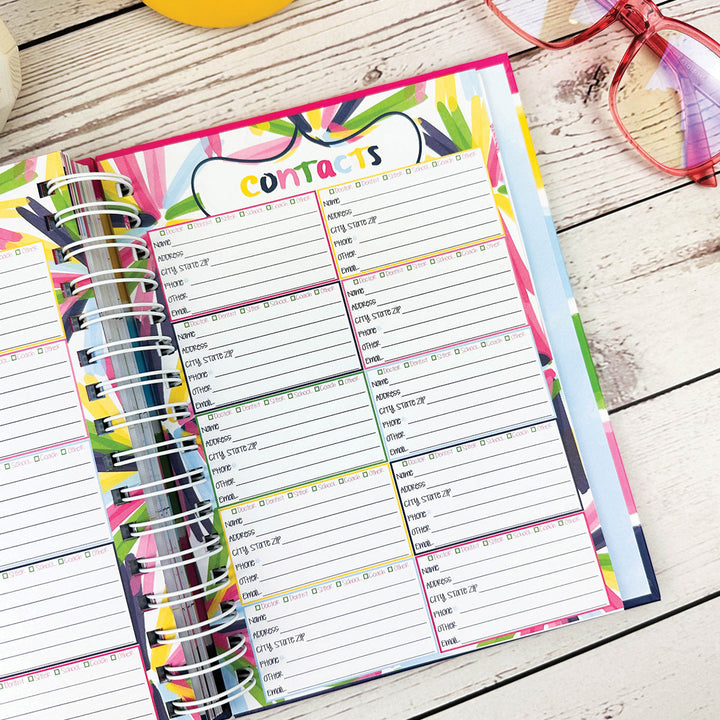 CONTACTS
Doctor Dentist Sitter School Coach Other
Name
Address
City, State Zip
Phone
Other
Email
Doctor Dentist Sitter School Coach Other
Name
Address
City, State Zip
Phone
Other
Email
Doctor Dentist Sitter School Coach Other
Name
Address
City, State Zip
Phone
Other
Email
Doctor Dentist Sitter School Coach Other
Name
Address
City, State Zip
Phone
Other
Email
Doctor Dentist Sitter School Coach Other
Name
Address
City, State Zip
Phone
Other
Email
Doctor Dentist Sitter School Coach Other
Name
Address
City, State Zip
Phone
Other
Email
Doctor Dentist Sitter School Coach Other
Name
Address
City, State Zip
Phone
Other
Email
Doctor Dentist Sitter School Coach Other
Name
Address
City, State Zip
Phone
Other
Email
Doctor Dentist Sitter School Coach Other
Name
Address
City, State Zip
Phone
Other
Email
Doctor Dentist Sitter School Coach Other
Name
Address
City, State Zip
Phone
Other
Email
Coach Other
School Coach Other
School Coach Other
Sitter School Coach Other
Sitter School Coach Other